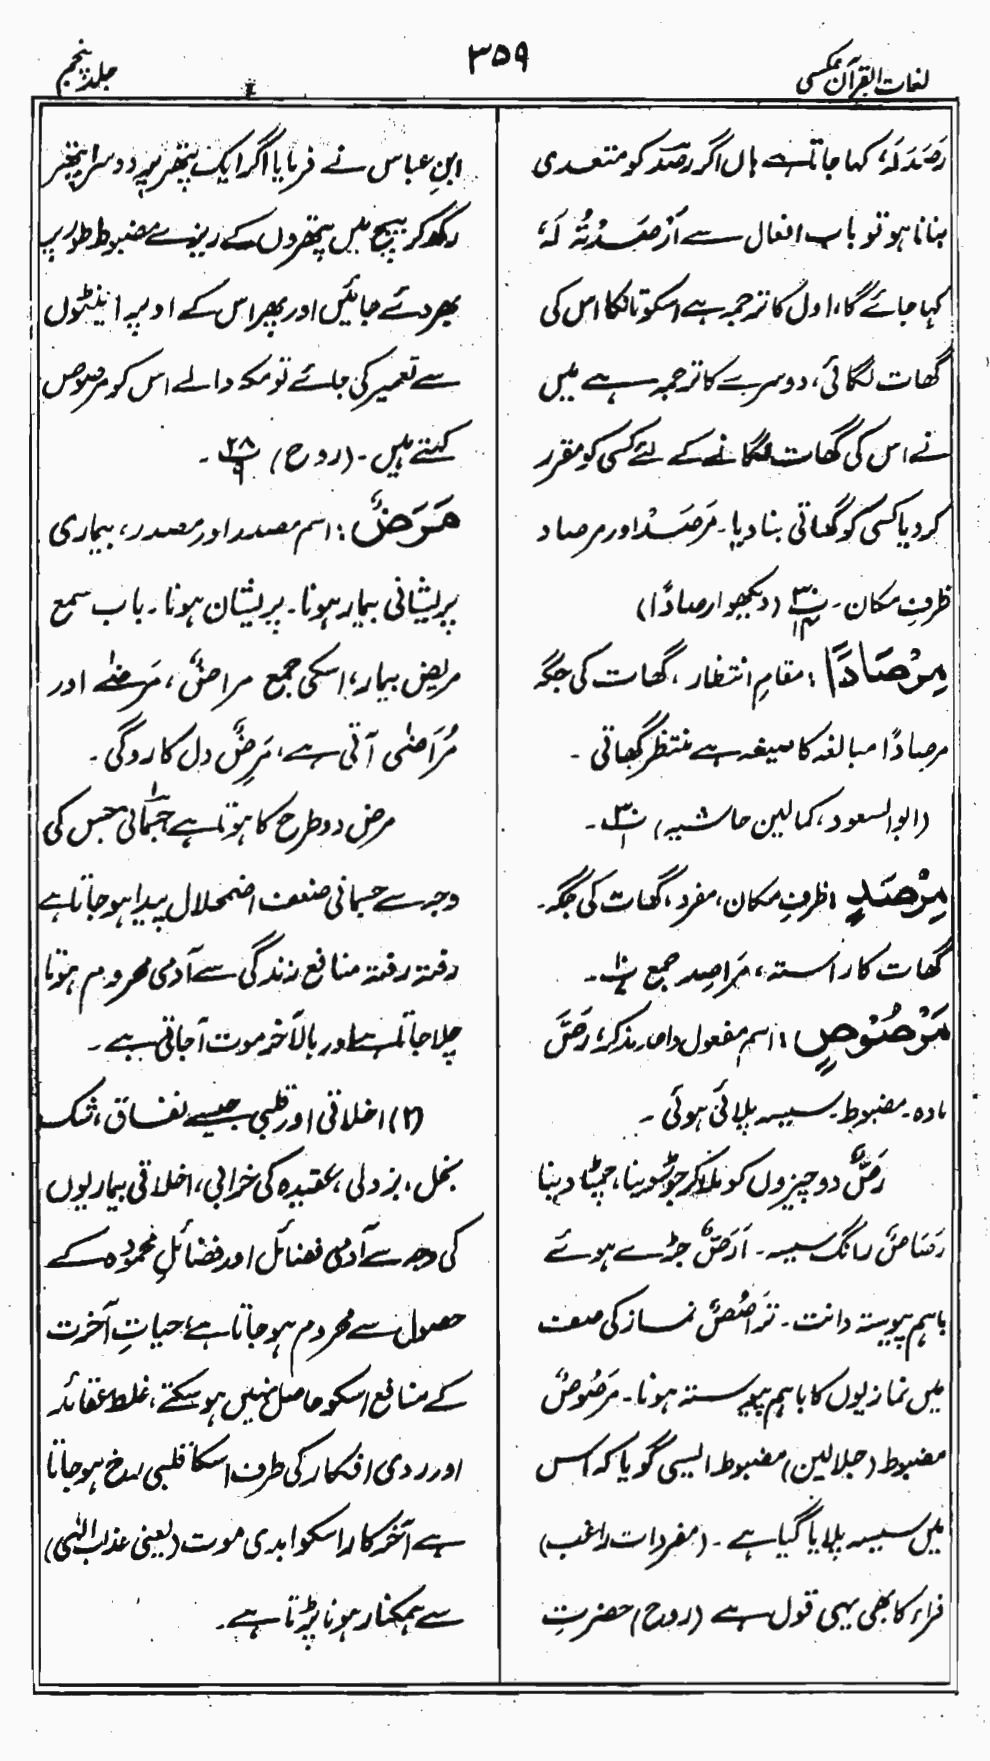 لغات القرآن عکسی
۳۵۹
جلد پنجم
رَصَدَ لَہٗ کہا جاتا ہے ہاں اگر رصَد کو متعدی
بنانا ہو تو باب افعال سے اَرْصَدْتُہٗ لَہٗ
کہا جائے گا، اول کا ترجمہ ہے اسکو تاکا اس کی
گھات لگائی، دوسرے کا ترجمہ ہے میں
نے اس کی گھات لگانے کے لئے کسی کو مقرر
کر دیا کسی کو گھاتی بنا دیا۔ مَرصَدْ اور مرصاد
ظرفِ مکان۔ (دیکھو ارصادًا)
مِرْصَادًا: مقامِ انتظار، گھات کی جگہ
مرصادًا مبالغہ کا صیغہ ہے منتظر گھاتی ۔
(ابوالسعود، کمالین حاشیہ) ۳۰/۱ ۔
مِرْصَدٍ: ظرفِ مکان، مفرد، گھات کی جگہ۔
گھات کا راستہ، مَراصِد جمع ۱۰/۷ ۔
مَرْصُوْصٍ: اسم مفعول واحد مذکر، رَصَّ
مادہ۔ مضبوط۔ سیسہ پلائی ہوئی ۔
رَصٌّ دو چیزوں کو ملا کر جوڑ دینا، چمٹا دینا
رَصَاصٌ رانگ سیسہ۔ اَرَصُّ جڑے ہوئے
باہم پیوستہ دانت۔ تَرَاصُصٌ نماز کی صف
میں نمازیوں کا باہم پیوستہ ہونا۔ مَرْصُوصٌ
مضبوط (جلالین) مضبوط ایسی گویا کہ اس
میں سیسہ پلایا گیا ہے ۔ (مفردات راغب)
فراء کا بھی یہی قول ہے (روح) حضرتِ
ابنِ عباس نے فرمایا اگر ایک پتھر پر دوسرا پتھر
رکھ کر بیچ میں پتھروں کے ریزے مضبوط طور پر
بھر دئے جائیں اور پھر اس کے اوپر اینٹوں
سے تعمیر کی جائے تو مکہ والے اس کو مرصوص
کہتے ہیں ۔ (روح) ۲۸/۹ ۔
مَرَضٌ: اسم مصدر اور مصدر، بیماری
پریشانی بیمار ہونا۔ پریشان ہونا۔ باب سمع
مریض بیمار، اسکی جمع مراضٌ، مَرضٰے اور
مُرَاضٰی آتی ہے، مَرِضٌ دل کا روگی ۔
مرض دو طرح کا ہوتا ہے ۱ جسمانی جس کی
وجہ سے جسمانی ضعف اضمحلال پیدا ہو جاتا ہے
رفتہ رفتہ منافع زندگی سے آدمی محروم ہوتا
چلا جاتا ہے اور بالآخر موت آجاتی ہے ۔
(۲) اخلاقی اور قلبی جیسے نفاق، شک
بخل، بزدلی، عقیدہ کی خرابی، اخلاقی بیماریوں
کی وجہ سے آدمی فضائل اور فضائلِ محمودہ کے
حصول سے محروم ہو جاتا ہے، حیاتِ آخرت
کے منافع اسکو حاصل نہیں ہو سکتے، غلط عقائد
اور ردی افکار کی طرف اسکا قلبی رخ ہو جاتا
ہے آخر کار اسکو ابدی موت (یعنی عذاب الٰہی)
سے ہمکنار ہونا پڑتا ہے۔